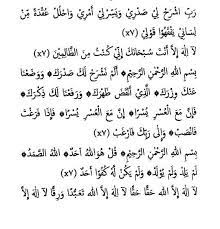 رَبِّ اشْرَحْ لِيْ صَدْرِيْ وَيَسِّرْلِيْ أَمْرِيْ وَاحْلُلْ عُقْدَةً مِّنْ
لِسَانِيْ يَفْقَهُوْا قَوْلِيْ (x٧)
لآ اِلهَ إِلاَّ أَنْتَ سُبْحَانَكَ إِنِّيْ كُنْتُ مِنَ الظَّالِمِيْنَ (x٧)
بِسْمِ اللهِ الرَّحْمنِ الرَّحِيْمِ ۞ أَلَمْ نَشْرَحْ لَكَ صَدْرَكَ ۞ وَوَضَعْنَا
عَنْكَ وِزْرَكَ ۞ الَّذِيْ أَنْقَضَ ظَهْرَكَ ۞ وَرَفَعْنَا لَكَ ذِكْرَكَ ۞
فَإِنَّ مَعَ الْعُسْرِ يُسْرًا ۞ إِنَّ مَعَ الْعُسْرِ يُسْرًا ۞ فَإِذَا فَرَغْتَ
فَانْصَبْ ۞ وَإِلَى رَبِّكَ فَارْغَبْ (x٧)
بِسْمِ اللهِ الرَّحْمنِ الرَّحِيْمِ ۞ قُلْ هُوَ اللهُ أَحَدٌ ۞ اَللهُ الصَّمَدُ ۞
لَمْ يَلِدْ وَلَمْ يُوْلَدْ ۞ وَلَمْ يَكُنْ لَهُ كُفُوًا أَحَدٌ (x٧)
لآ اِلهَ إِلاَّ اللهُ حَقًّا حَقًّا لآ اِلهَ إِلاَّ اللهُ تَعَبُّدًا وَرِقًّا لآ اِلهَ إِلاَّ